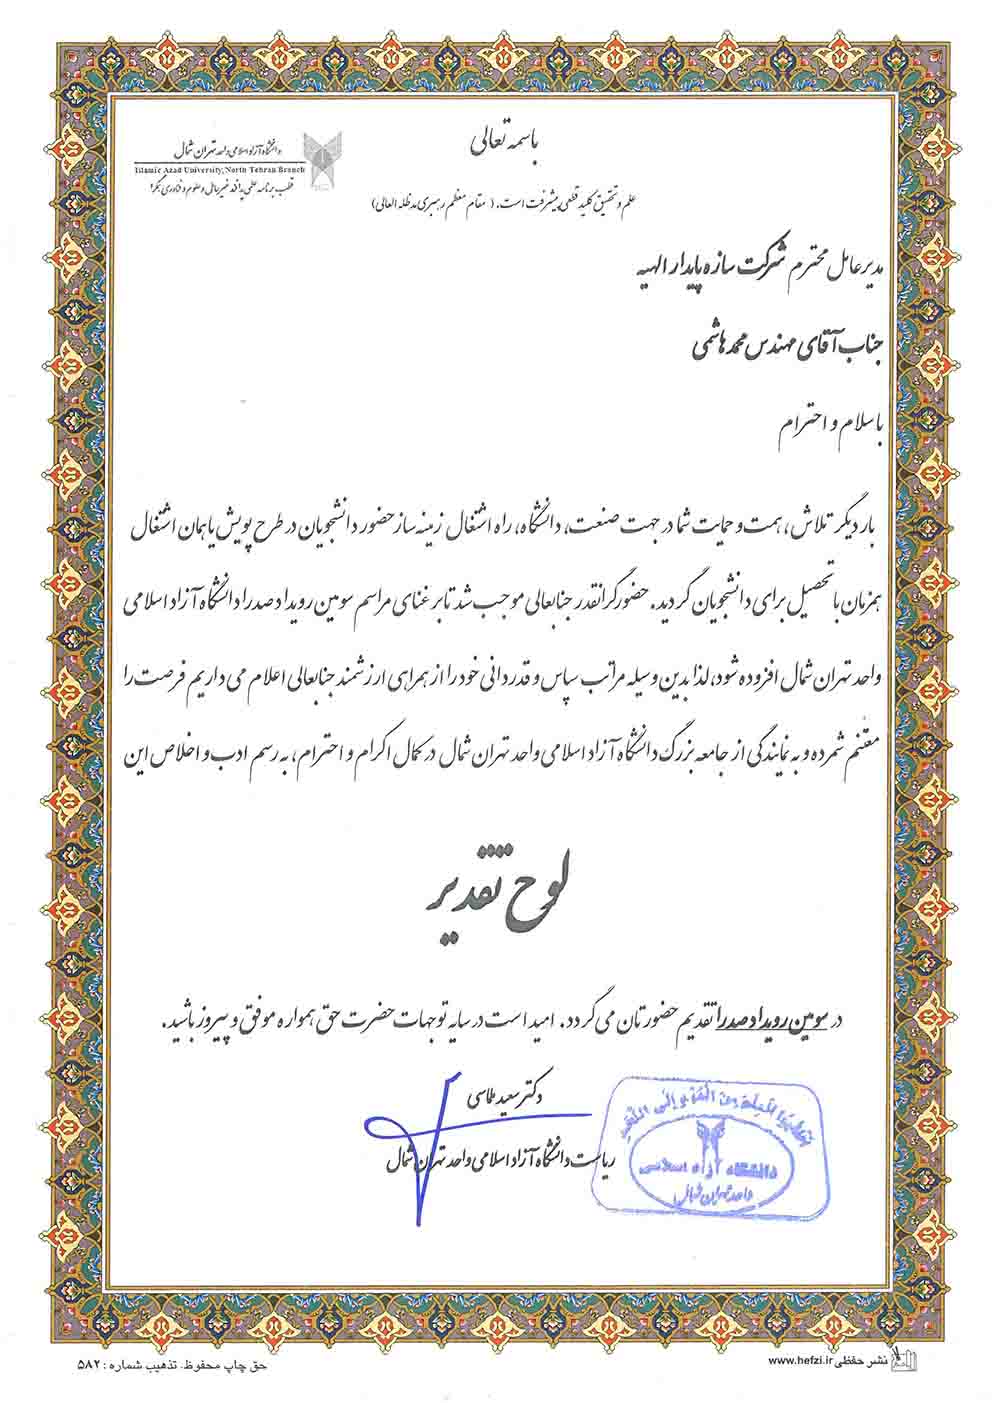 باسمه تعالی
دانشگاه آزاد اسلامی واحد تهران شمال
Islamic Azad University, North Tehran Branch
قطب برنامه علمی پدافند غیرعامل و علوم و فناوری
علم و تحقیق کلید قطعی پیشرفت است. (مقام معظم رهبری مدظله العالی)
مدیرعامل محترم شرکت سازه پایدار الهیه
جناب آقای مهندس محمد هاشمی
با سلام و احترام
بار دیگر تلاش، همت و حمایت شما در جهت صنعت، دانشگاه، راه اشتغال زمینه ساز حضور دانشجویان در طرح پویش یا همان اشتغال
همزمان با تحصیل برای دانشجویان گردید. حضور گرانقدر جنابعالی موجب شد تا بر غنای مراسم سومین رویداد صدرا دانشگاه آزاد اسلامی
واحد تهران شمال افزوده شود، لذا بدین وسیله مراتب سپاس و قدردانی خود را از همراهی ارزشمند جنابعالی اعلام می داریم فرصت را
مغتنم شمرده و به نمایندگی از جامعه بزرگ دانشگاه آزاد اسلامی واحد تهران شمال در کمال اکرام و احترام، به رسم ادب و اخلاص این
لوح تقدیر
در سومین رویداد صدرا تقدیم حضورتان می گردد. امید است در سایه توجهات حضرت حق همواره موفق و پیروز باشید.
دکتر سعید طلاسی
ریاست دانشگاه آزاد اسلامی واحد تهران شمال
دانشگاه آزاد اسلامی
واحد تهران شمال
نشر حفظی www.hefzi.ir
حق چاپ محفوظ. تذهیب شماره: ۵۸۲